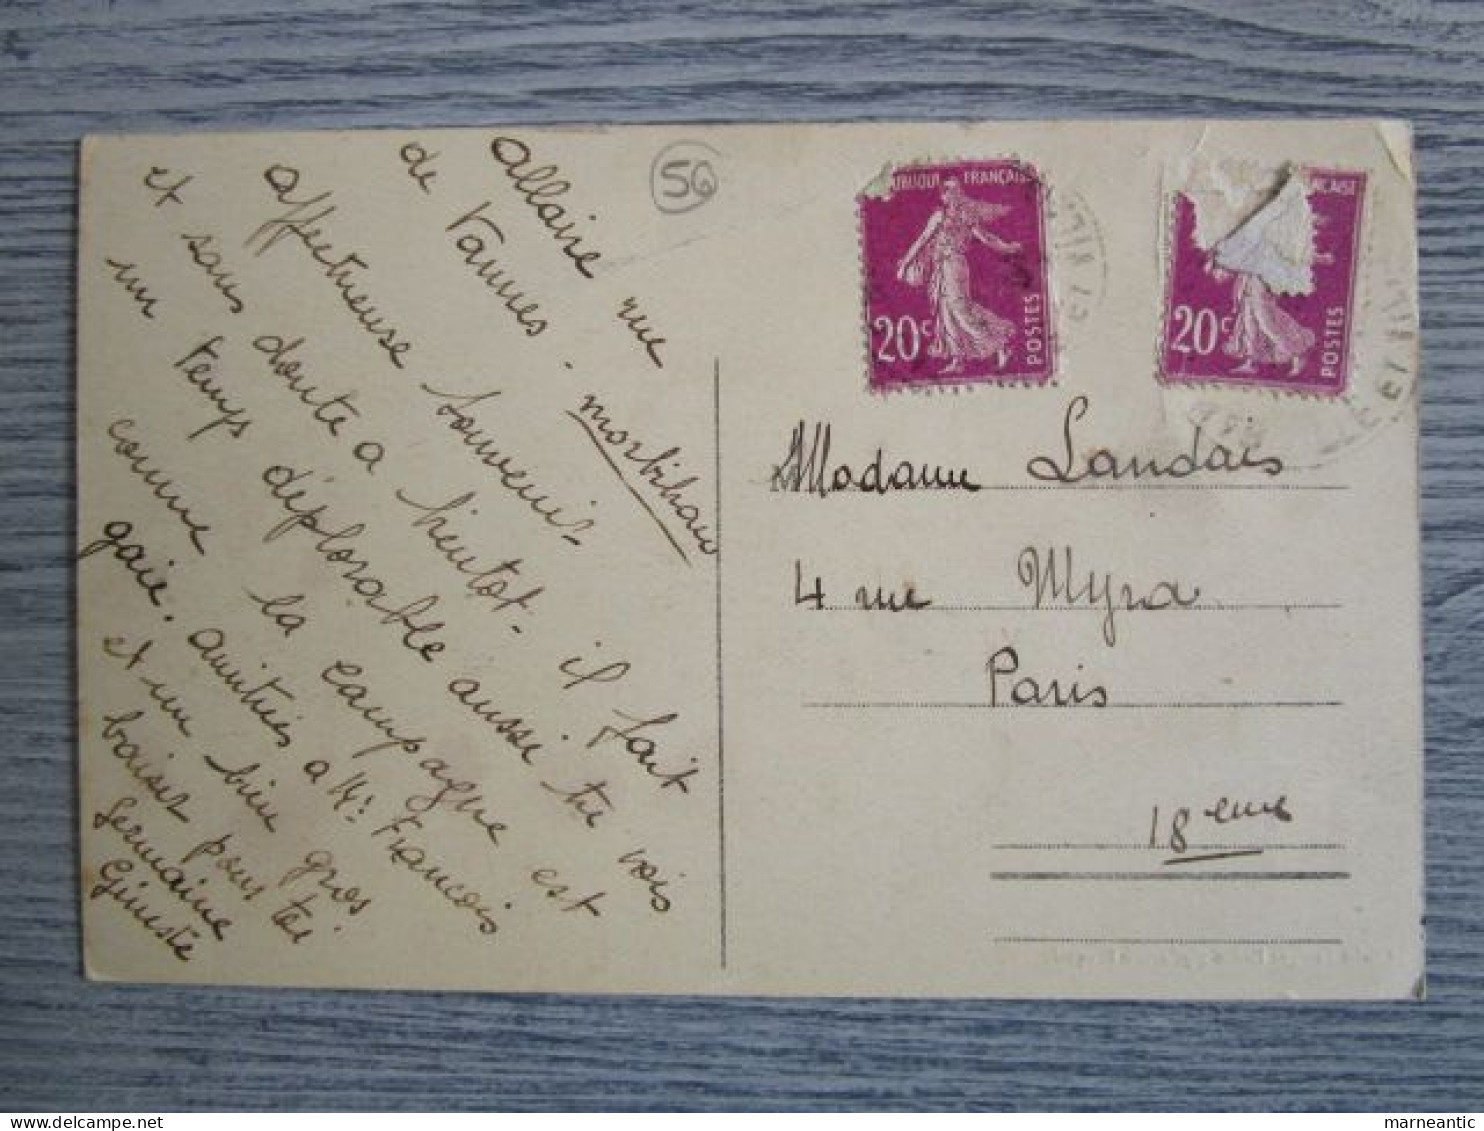 allaire rue
de Vannes. morbihan
affectueuse souvenir
et sans doute a bientot. il fait
un temps déplorable aussi tu vois
comme la campagne est
gaie. amitiés a Mr François
et un bien gros
baiser pour toi
Germaine
Gineste
56
RÉPUBLIQUE FRANÇAISE
20c
POSTES
NÇAISE
20c
POSTES
Madame Landais
4 rue Myra
Paris
18eme
marneantic